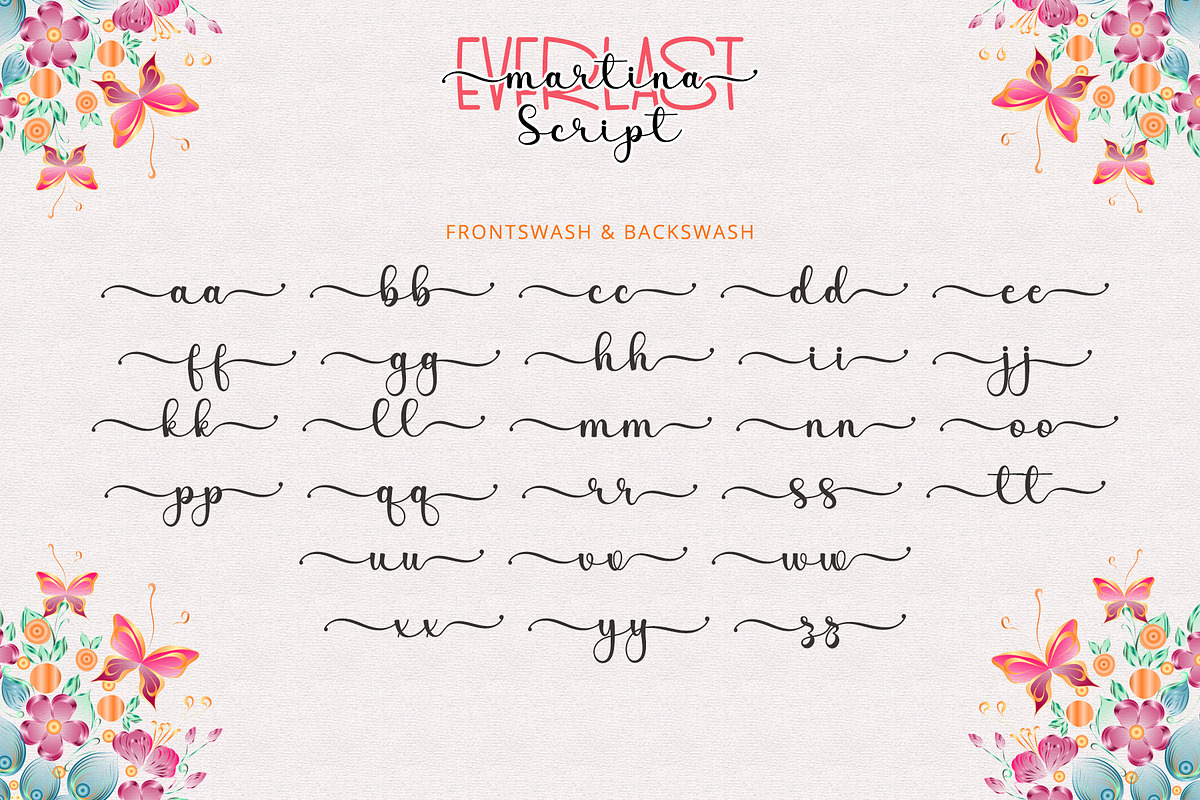 EVERLAST
martina
Script
FRONTSWASH & BACKSWASH
aa bb cc dd ee
ff gg hh ii jj
kk ll mm nn oo
pp qq rr ss tt
uu vv ww
xx yy zz